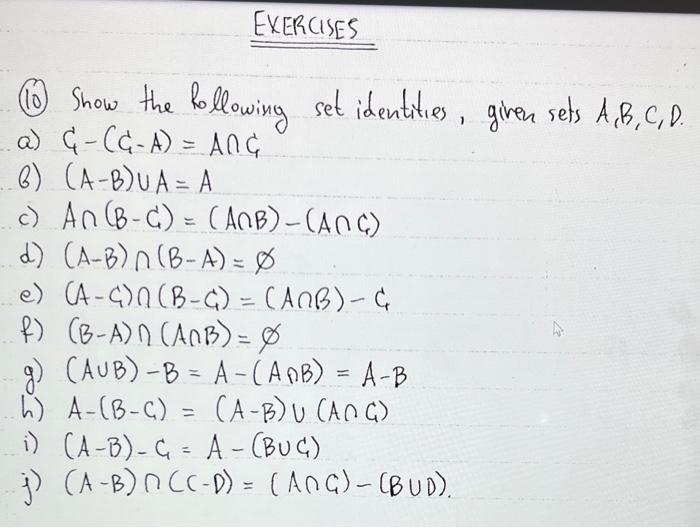 EXERCISES
(10) Show the following set identities, given sets A, B, C, D.
a) C-(C-A) = A∩C
b) (A-B)∪A = A
c) A∩(B-C) = (A∩B)-(A∩C)
d) (A-B)∩(B-A) = ∅
e) (A-C)∩(B-C) = (A∩B)-C
f) (B-A)∩(A∩B) = ∅
g) (A∪B)-B = A-(A∩B) = A-B
h) A-(B-C) = (A-B)∪(A∩C)
i) (A-B)-C = A-(B∪C)
j) (A-B)∩(C-D) = (A∩C)-(B∪D).